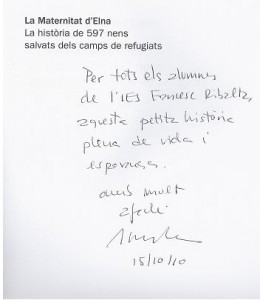 La Maternitat d'Elna
La història de 597 nens
salvats dels camps de refugiats
Per tots els alumnes
de l'IES Francesc Ribalta,
aquesta petita història
plena de vida i
esperança.
amb molt
afecte
15/10/10